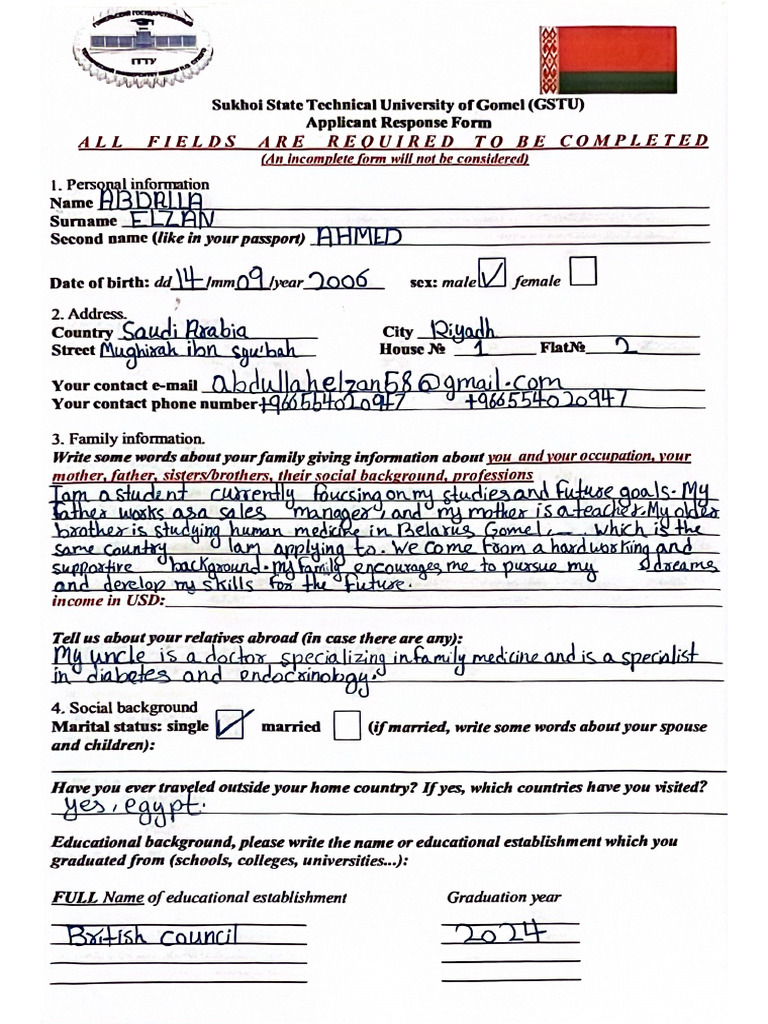 ГОМЕЛЬСКИЙ ГОСУДАРСТВЕННЫЙ
ГГТУ
Sukhoi State Technical University of Gomel (GSTU)
Applicant Response Form
ALL FIELDS ARE REQUIRED TO BE COMPLETED
(An incomplete form will not be considered)
1. Personal information
Name ABDRLLA
Surname ELZAN
Second name (like in your passport) AHMED
Date of birth: dd 14 /mm 09 /year 2006 sex: male ✓ female
2. Address.
Country Saudi Arabia City Riyadh
Street Mughirah ibn sgu'bah House № 1 Flat№ 2
Your contact e-mail abdullahelzan58@gmail.com
Your contact phone number +966554020947 +966554020947
3. Family information.
Write some words about your family giving information about you and your occupation, your
mother, father, sisters/brothers, their social background, professions
I am a student currently foucsing on my studies and future goals. My
father works as a sales manager, and my mother is a teacher. My older
brother is studying human medicine in Belarus Gomel, which is the
same country I am applying to. We come from a hard working and
supportive background. my family encourages me to pursue my dreams
and develop my skills for the future.
income in USD:
Tell us about your relatives abroad (in case there are any):
My uncle is a doctor specializing in family medicine and is a specialist
in diabetes and endocrinology.
4. Social background
Marital status: single ✓ married (if married, write some words about your spouse
and children):
Have you ever traveled outside your home country? If yes, which countries have you visited?
yes, egypt.
Educational background, please write the name or educational establishment which you
graduated from (schools, colleges, universities...):
FULL Name of educational establishment Graduation year
British council 2024